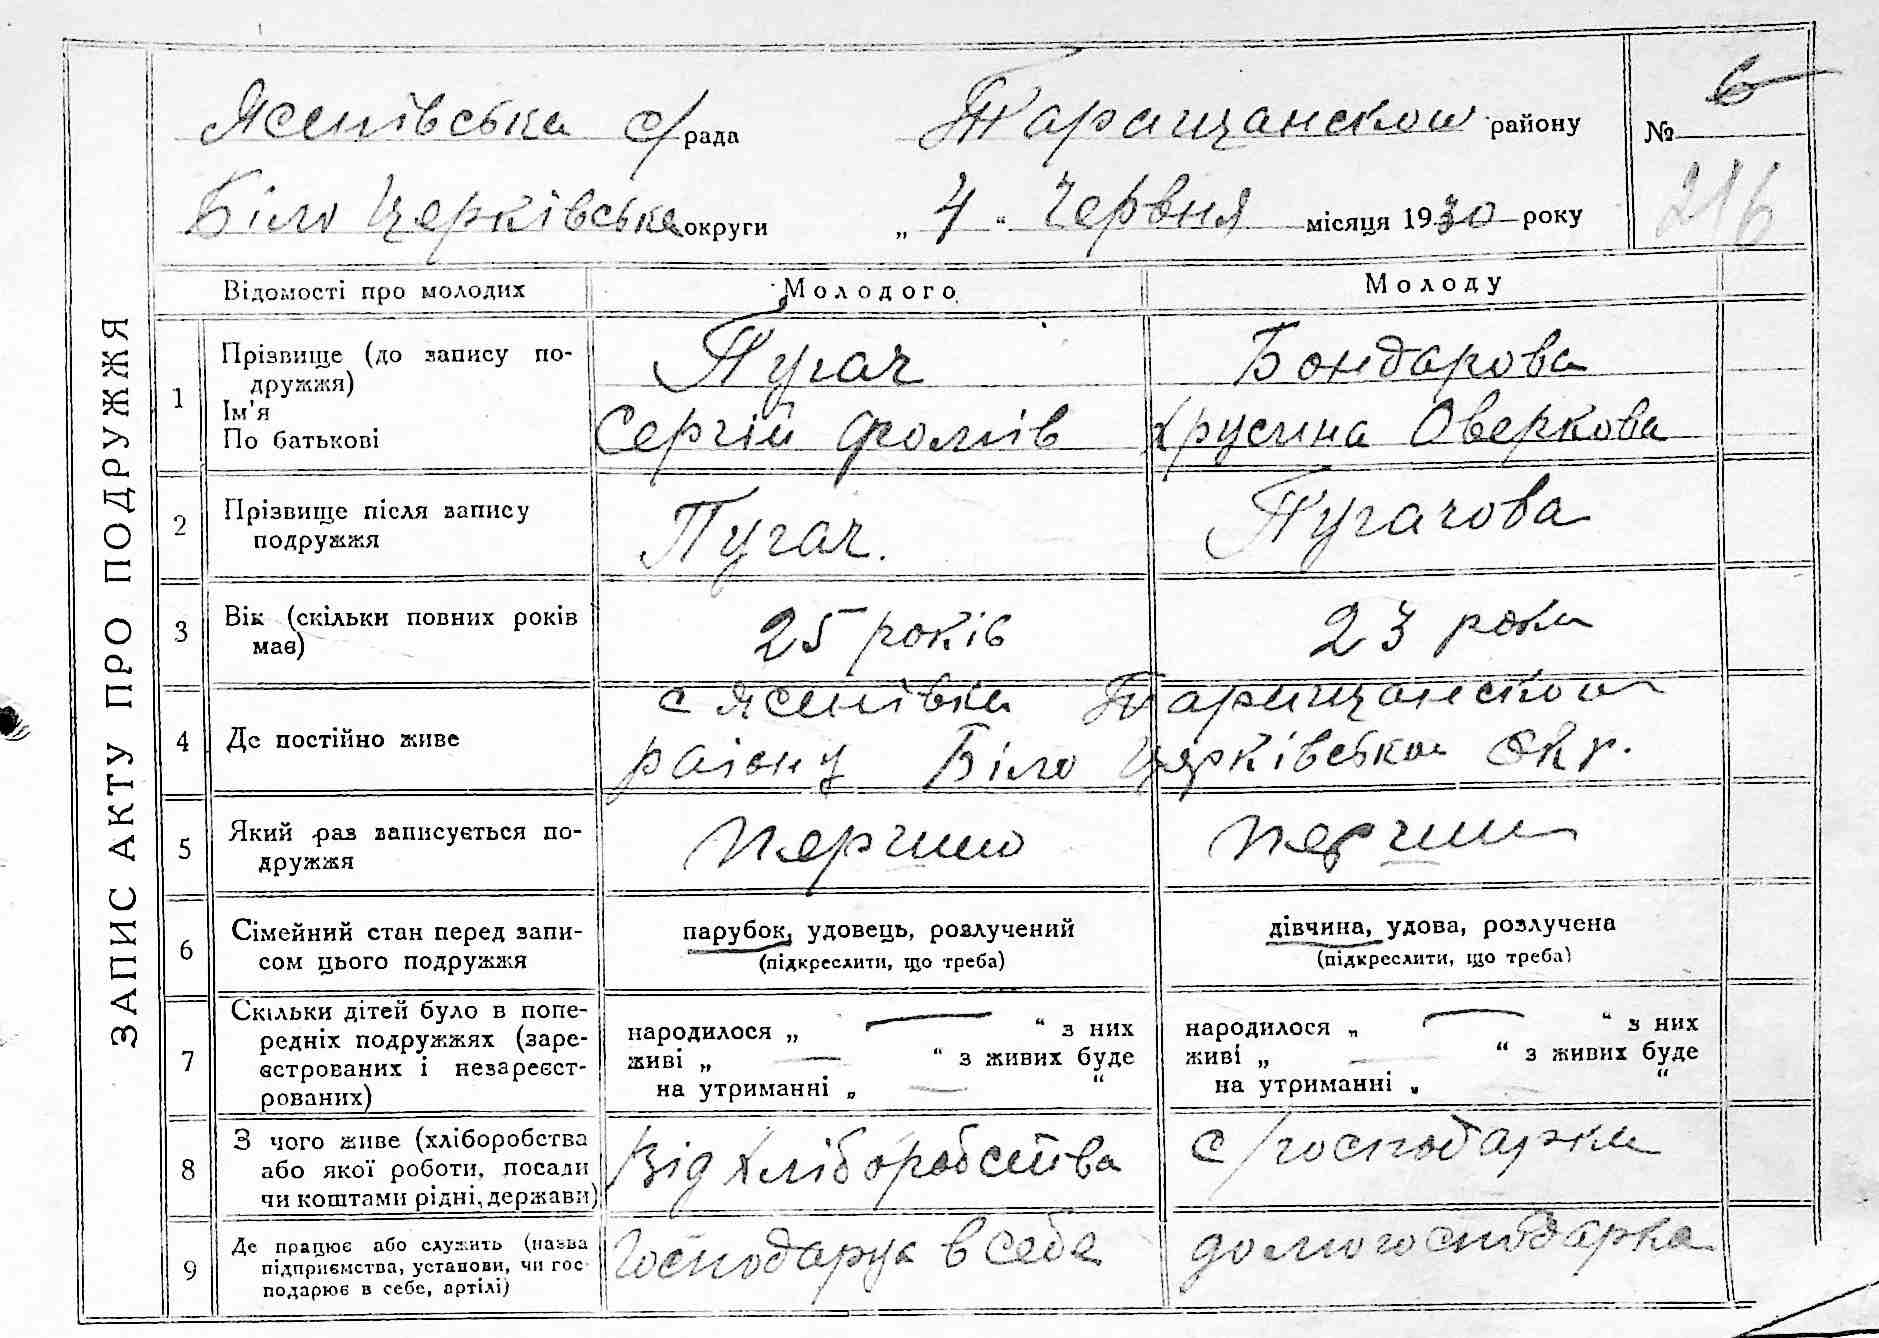 ЗАПИС АКТУ ПРО ПОДРУЖЖЯ
Ясенівська с/рада Таращанскои району № 6
Біло Церківська округи „ 4 “ Червня місяця 1930 року 216
Відомості про молодих Молодого Молоду
1 Прізвище (до запису по-
дружжя)
Ім'я
По батькові
Пугач
Сергій Фомів
Бондарова
Хрусина Оверкова
2 Прізвище після запису
подружжя
Пугач.
Пугачова
3 Вік (скільки повних років
має)
25 років
23 роки
4 Де постійно живе
с Ясенівки Таращанскои
раіону Біло Цярківськои Окр.
5 Який раз записується по-
дружжя
6 Сімейний стан перед запи-
сом цього подружжя
парубок, удовець, розлучений
(підкреслити, що треба)
дівчина, удова, розлучена
(підкреслити, що треба)
7 Скільки дітей було в попе-
редніх подружжях (заре-
єстрованих і незареєст-
рованих)
народилося „ — “ з них
живі „ — “ з живих буде
на утриманні „ — “
народилося „ — “ з них
живі „ — “ з живих буде
на утриманні „ “
8 З чого живе (хліборобства
або якої роботи, посади
чи коштами рідні, держави)
Від хліборобства
с/господарки
9 Де працює або служить (назва
підприємства, установи, чи гос-
подарює в себе, артілі)
Господарує в себе
домогосподарка